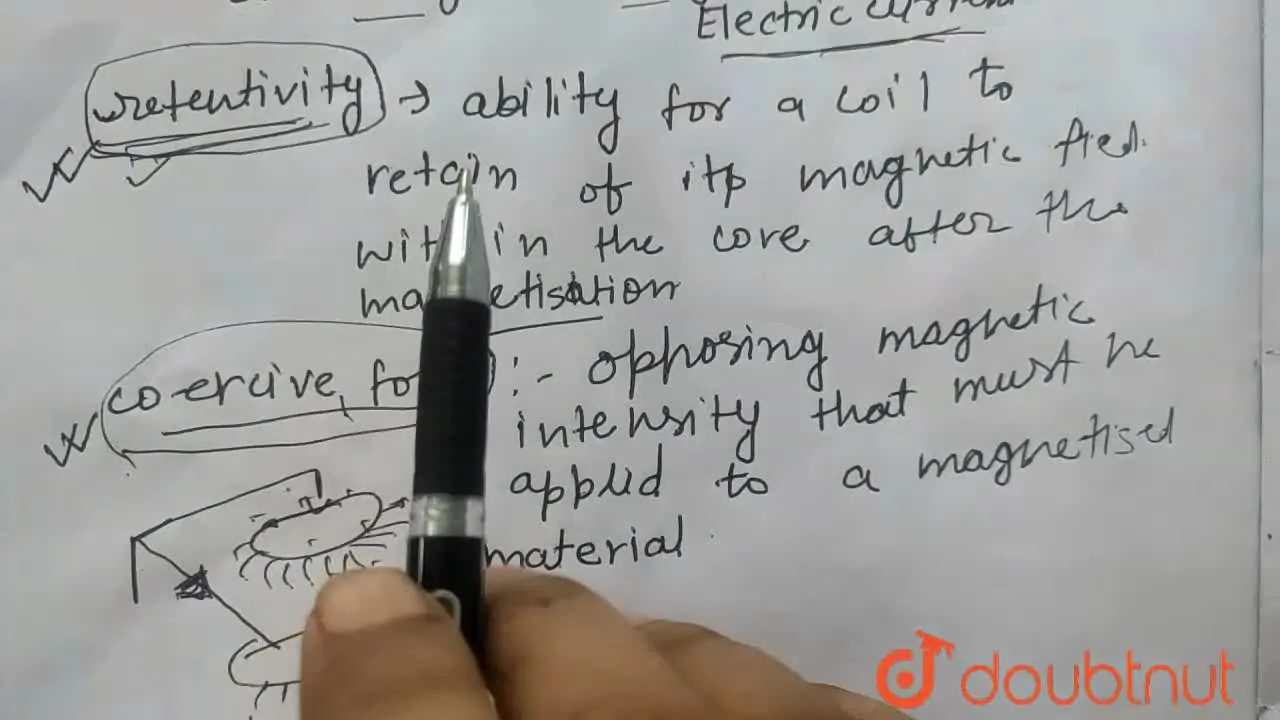 Electric current
retentivity → ability for a coil to
retain of its magnetic field
within the core after the
magnetisation
co-ercive :- opposing magnetic
intensity that must be
applied to a magnetised
material
doubtnut